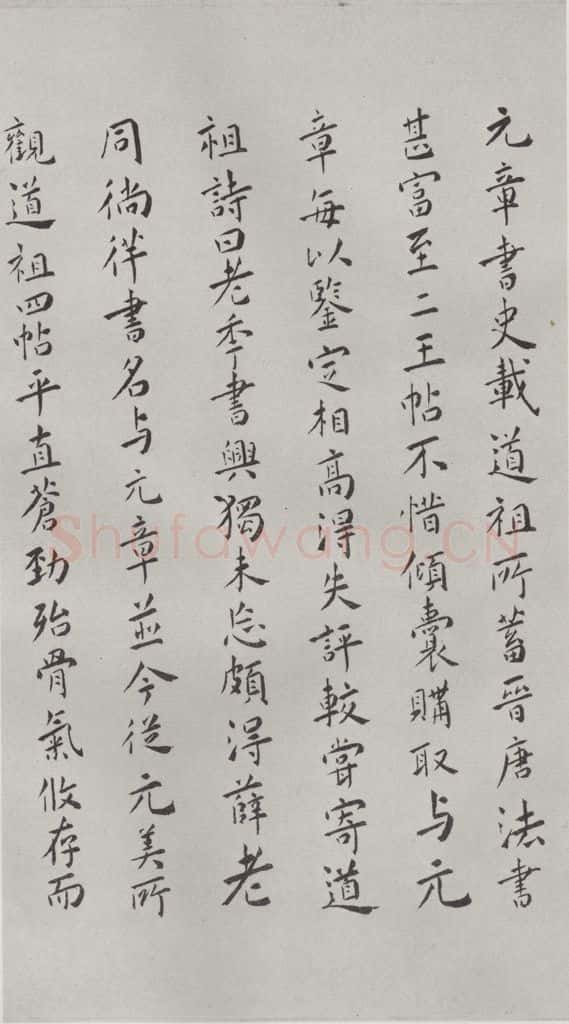 元章書史載道祖所蓄晉唐法書
甚富至二王帖不惜傾囊購取与元
章每以鑒定相高得失評較嘗寄道
祖詩曰老季書興獨未忘頗得薛老
同徜徉書名与元章並今從元美所
觀道祖四帖平直蒼勁殆骨氣攸存而
Shufawang.CN